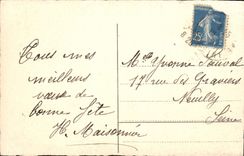 Tous mes
meilleurs
vœux de
bonne fête
H. Maisonnier
Mlle Yvonne Sauval
17 rue des Graviers
Neuilly
Seine
25